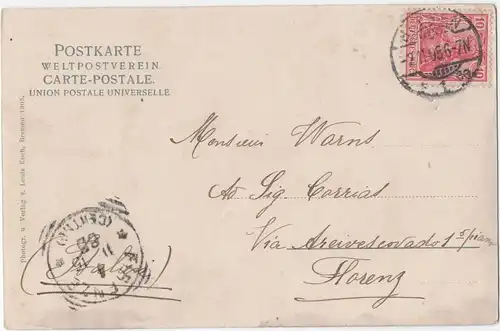 POSTKARTE
WELTPOSTVEREIN
CARTE-POSTALE.
UNION POSTALE UNIVERSELLE
Photogr. u Verlag v. Louis Koch, Bremen 1903.
Monsieur Warns
Ad Sig. Corrias
Via Areivescovado 1 s/pian
Florenz
(Italien)
FIRENZE
(CENTRO)
10
10